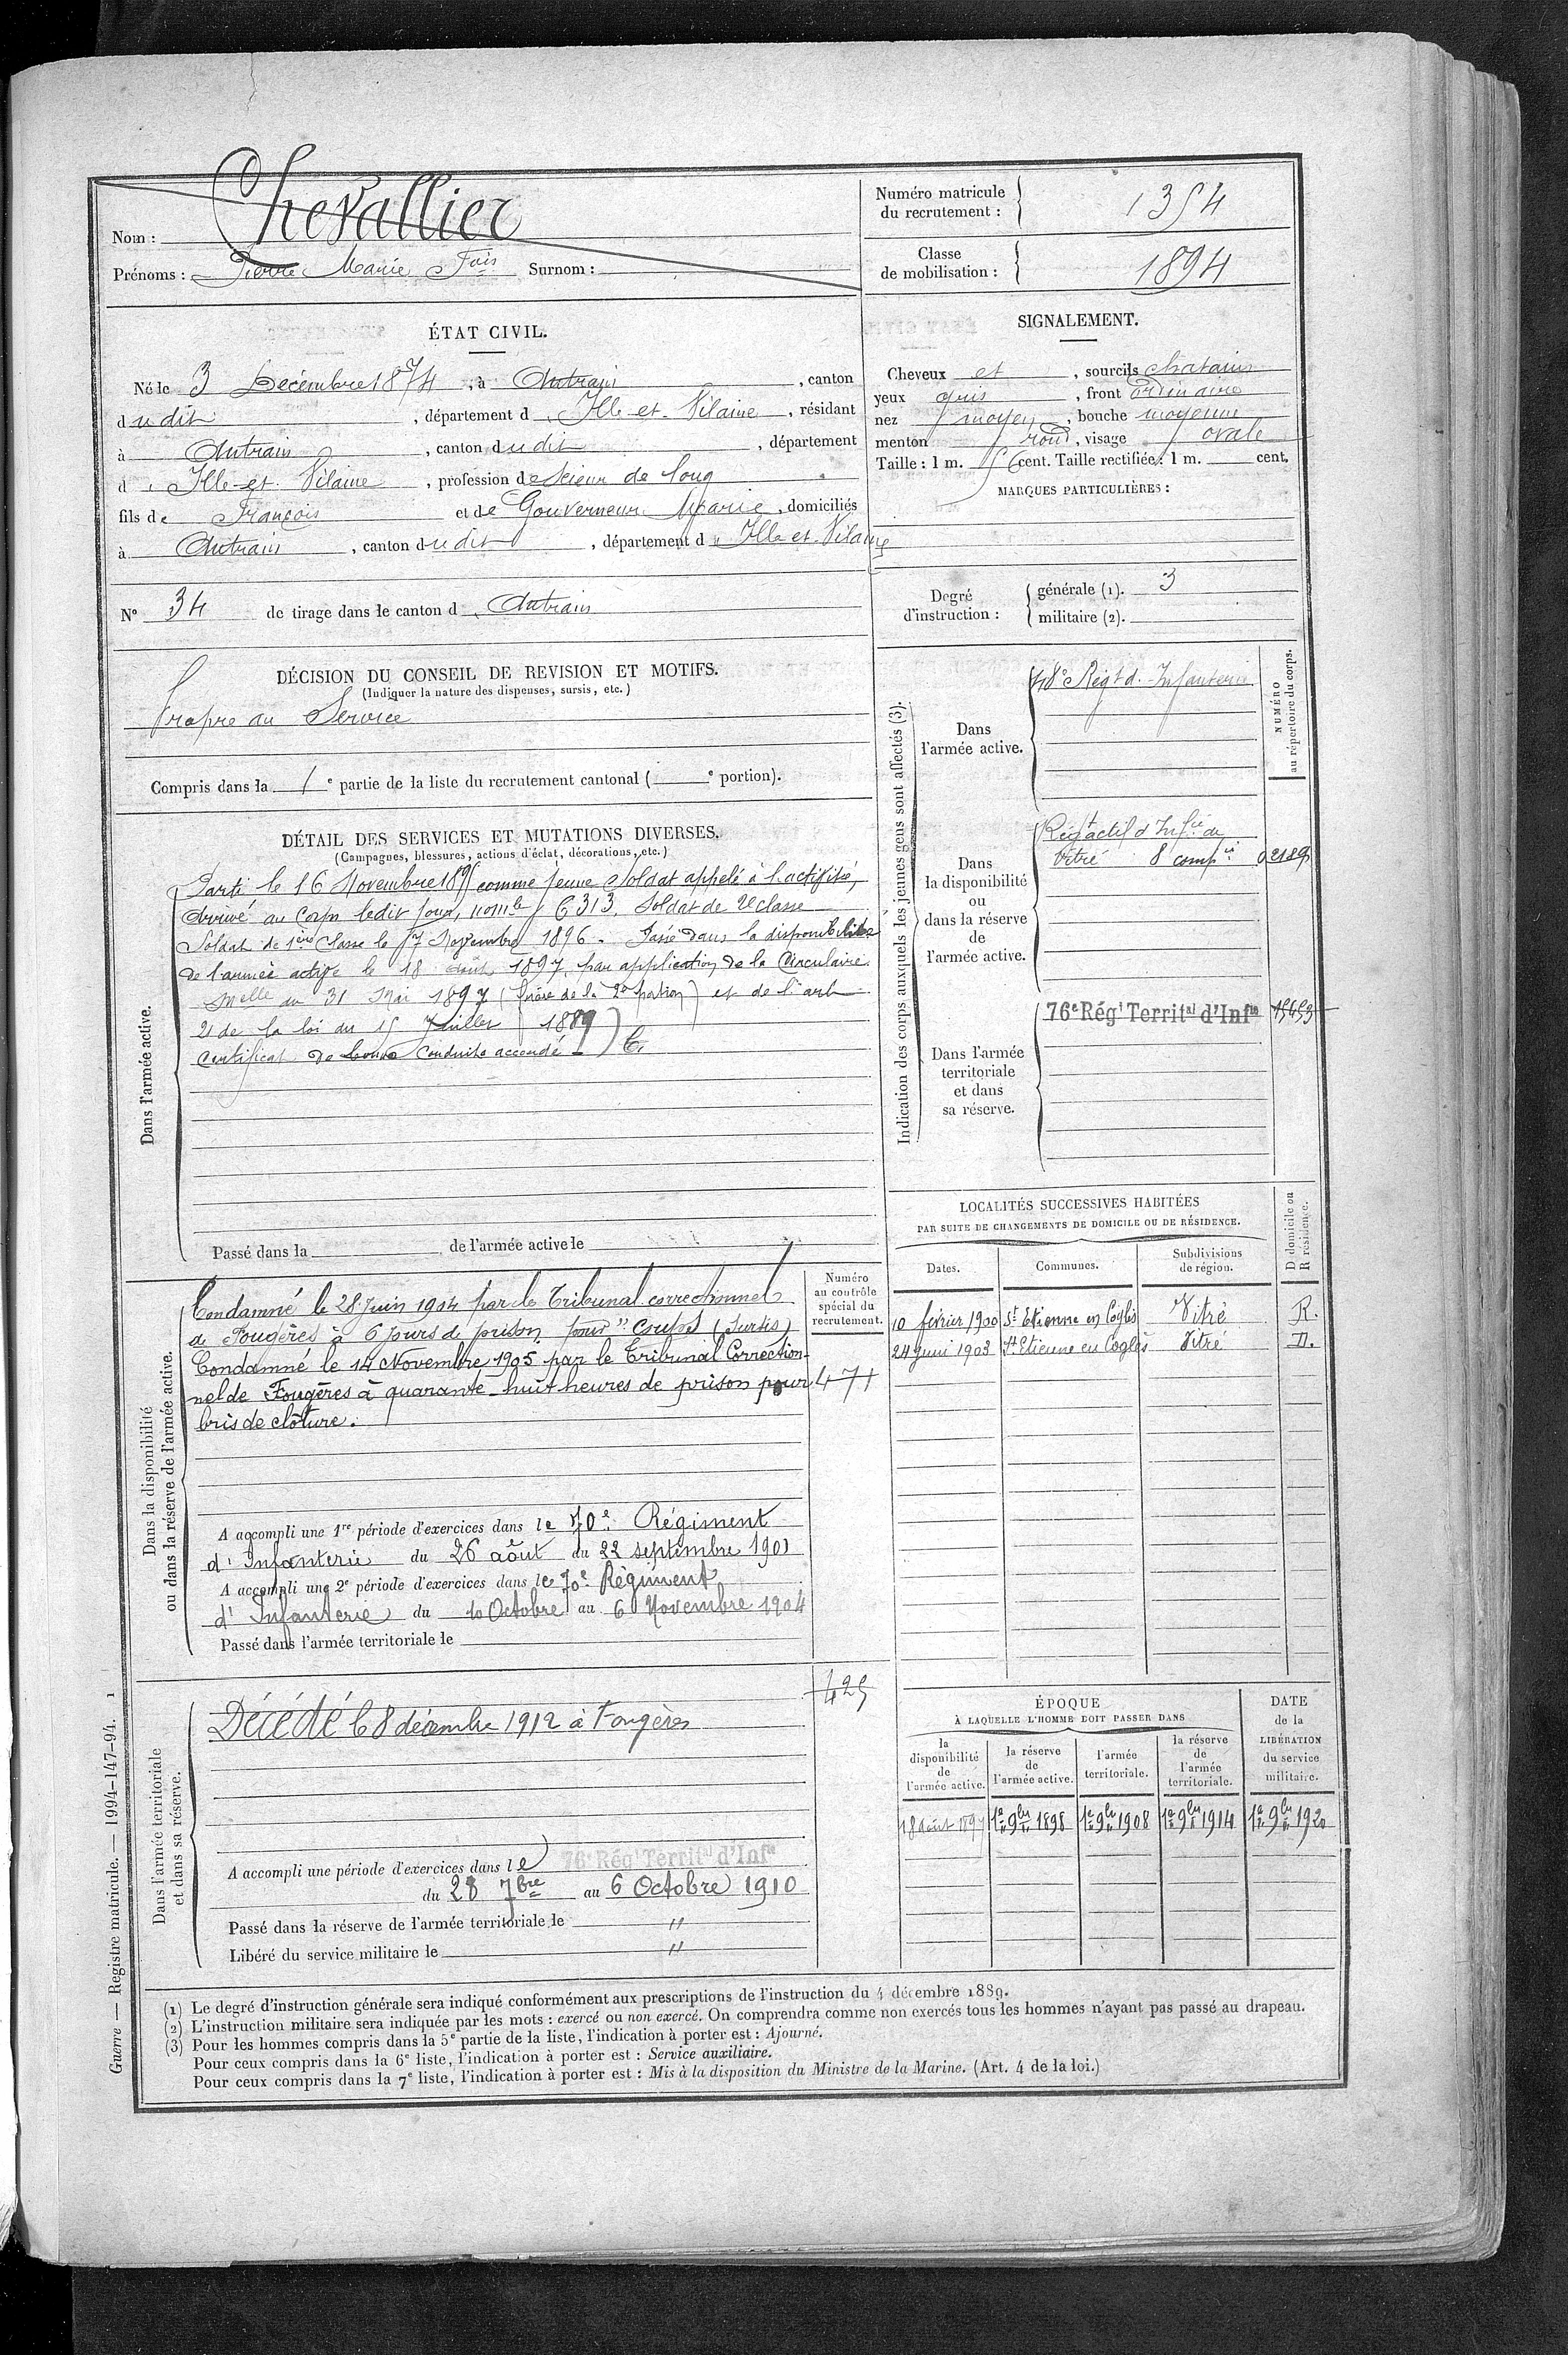 Nom : Chevallier
Prénoms : Pierre Marie Fois Surnom :
Numéro matricule du recrutement : 1354
Classe de mobilisation : 1894
ÉTAT CIVIL.
Né le 3 Décembre 1874, à Antrain, canton
dudit, département d'Ille-et-Vilaine, résidant
à Antrain, canton dudit, département
d'Ille-et-Vilaine, profession de Scieur de long
fils de François et de Gouverneur Marie, domiciliés
à Antrain, canton dudit, département d'Ille et Vilaine
N° 34 de tirage dans le canton d'Antrain
SIGNALEMENT.
Cheveux et, sourcils chatains
yeux gris, front ordinaire
nez moyen, bouche moyenne
menton rond, visage ovale
Taille : 1 m. 56 cent. Taille rectifiée : 1 m. cent.
MARQUES PARTICULIÈRES :
Degré d'instruction :
générale (1). 3
militaire (2).
DÉCISION DU CONSEIL DE REVISION ET MOTIFS.
(Indiquer la nature des dispenses, sursis, etc.)
Propre au Service
Compris dans la 1e partie de la liste du recrutement cantonal ( e portion).
Indication des corps auxquels les jeunes gens sont affectés (3).
NUMÉRO au répertoire du corps.
Dans l'armée active.
48e Régt d'Infanterie
Dans la disponibilité ou dans la réserve de l'armée active.
Régt actif d'Infie de
Vitré 8 compie 02189
Dans l'armée territoriale et dans sa réserve.
76e Régt Territal d'Infie 15453
DÉTAIL DES SERVICES ET MUTATIONS DIVERSES.
(Campagnes, blessures, actions d'éclat, décorations, etc.)
Dans l'armée active.
Parti le 16 Novembre 1895 comme jeune Soldat appelé à l'activité,
Arrivé au Corps ledit jour, nomle 6313. Soldat de 2e classe
Soldat de 1ère Classe le 17 Novembre 1896. Passé dans la disponibilité
de l'armée active le 18 août 1897, par application de la Circulaire
Melle du 31 Mai 1897 (frère de la 2e portion) et de l'art
21 de la loi du 15 Juillet 1889
Certificat de bonne conduite accordé
Passé dans la de l'armée active le
Dans la disponibilité ou dans la réserve de l'armée active.
Numéro au contrôle spécial du recrutement.
Condamné le 28 Juin 1904 par le Tribunal correctionnel
de Fougères à 6 jours de prison pour "coups" (Sursis)
Condamné le 14 Novembre 1905 par le Tribunal Correction-
nel de Fougères à quarante-huit heures de prison pour
bris de clôture.
471
A accompli une 1re période d'exercices dans le 70e Régiment
d'Infanterie du 26 août au 22 septembre 1901
A accompli une 2e période d'exercices dans le 70e Régiment
d'Infanterie du 10 Octobre au 6 Novembre 1904
Passé dans l'armée territoriale le
LOCALITÉS SUCCESSIVES HABITÉES
PAR SUITE DE CHANGEMENTS DE DOMICILE OU DE RÉSIDENCE.
Dates. Communes. Subdivisions de région. D domicile ou R résidence.
10 février 1900 St Etienne en Coglès Vitré R.
24 juin 1903 St Etienne en Coglès Vitré D.
Dans l'armée territoriale et dans sa réserve.
425
Décédé le 8 décembre 1912 à Fougères
A accompli une période d'exercices dans le 76e Régt Territal d'Infie
du 28 7bre au 6 Octobre 1910
Passé dans la réserve de l'armée territoriale le "
Libéré du service militaire le "
ÉPOQUE
À LAQUELLE L'HOMME DOIT PASSER DANS
la disponibilité de l'armée active.
la réserve de l'armée active.
l'armée territoriale.
la réserve de l'armée territoriale.
DATE de la LIBÉRATION du service militaire.
18 août 1897 1er 9bre 1898 1er 9bre 1908 1er 9bre 1914 1er 9bre 1920
(1) Le degré d'instruction générale sera indiqué conformément aux prescriptions de l'instruction du 4 décembre 1889.
(2) L'instruction militaire sera indiquée par les mots : exercé ou non exercé. On comprendra comme non exercés tous les hommes n'ayant pas passé au drapeau.
(3) Pour les hommes compris dans la 5e partie de la liste, l'indication à porter est : Ajourné.
Pour ceux compris dans la 6e liste, l'indication à porter est : Service auxiliaire.
Pour ceux compris dans la 7e liste, l'indication à porter est : Mis à la disposition du Ministre de la Marine. (Art. 4 de la loi.)
Guerre — Registre matricule. — 1994-147-94. 1